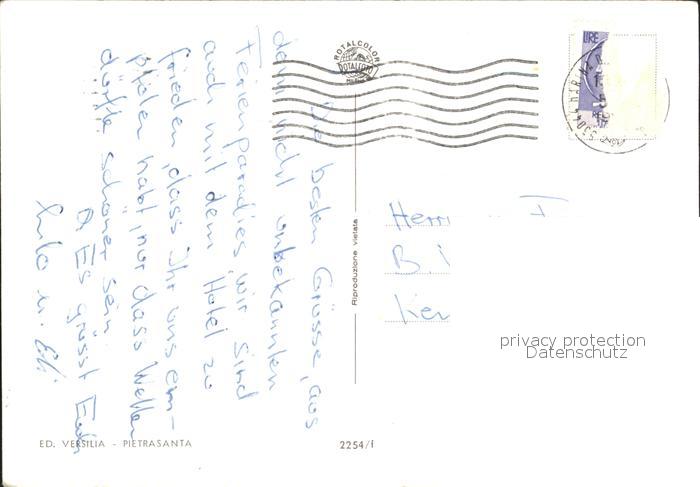 Die besten Grüsse, aus
dem nicht unbekannten
Ferienparadies, wir sind
auch mit dem Hotel zu
frieden, dass Ihr uns em-
pfolen habt, nur dass Wetter
dürfte schöner sein
Es grüsst Euch
u.
ROTALCOLOR
ROTALCOLOR
LIRE
Riproduzione vietata
Herrn
B.
privacy protection
Datenschutz
ED. VERSILIA - PIETRASANTA
2254/f